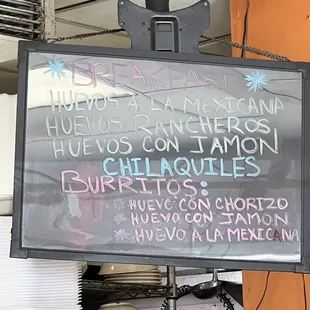 BREAKFAST
HUEVOS A LA MEXICANA
HUEVOS RANCHEROS
HUEVOS CON JAMON
CHILAQUILES
BURRITOS:
HUEVO CON CHORIZO
HUEVO CON JAMON
HUEVO A LA MEXICANA